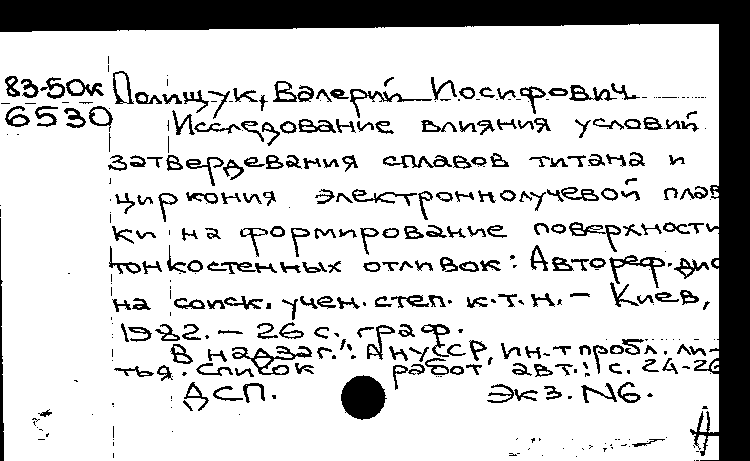 83-50к Полищук, Валерий Иосифович.
6530 Исследование влияния условий
затвердевания сплавов титана и
циркония электроннолучевой плав
ки на формирование поверхности
тонкостенных отливок: Автореф. дис
на соиск. учен. степ. к.т.н. – Киев,
1982. – 26 с., граф.
В надзаг.: АН УССР, Ин-т пробл. ли-
тья. Список работ авт.: с. 24-26
ДСП. Экз. N6.